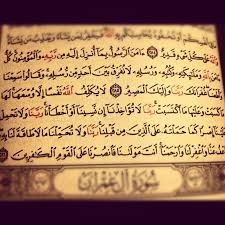 أَوْ تُخْفُوهُ يُحَاسِبْكُم بِهِ ٱللَّهُ فَيَغْفِرُ لِمَن يَشَآءُ
عَلَىٰ كُلِّ شَىْءٍ قَدِيرٌ ۝٢٨٤ ءَامَنَ ٱلرَّسُولُ بِمَآ أُنزِلَ إِلَيْهِ مِن رَّبِّهِۦ وَٱلْمُؤْمِنُونَ كُلٌّ
بِٱللَّهِ وَمَلَـٰٓئِكَتِهِۦ وَكُتُبِهِۦ وَرُسُلِهِۦ لَا نُفَرِّقُ بَيْنَ أَحَدٍ مِّن رُّسُلِهِۦ وَقَالُوا۟ سَمِعْنَا
وَأَطَعْنَا غُفْرَانَكَ رَبَّنَا وَإِلَيْكَ ٱلْمَصِيرُ ۝٢٨٥ لَا يُكَلِّفُ ٱللَّهُ نَفْسًا إِلَّا وُسْعَهَا لَهَا مَا
كَسَبَتْ وَعَلَيْهَا مَا ٱكْتَسَبَتْ رَبَّنَا لَا تُؤَاخِذْنَآ إِن نَّسِينَآ أَوْ أَخْطَأْنَا رَبَّنَا وَلَا تَحْمِلْ
عَلَيْنَآ إِصْرًا كَمَا حَمَلْتَهُۥ عَلَى ٱلَّذِينَ مِن قَبْلِنَا رَبَّنَا وَلَا تُحَمِّلْنَا مَا لَا طَاقَةَ لَنَا بِهِۦ
وَٱعْفُ عَنَّا وَٱغْفِرْ لَنَا وَٱرْحَمْنَآ أَنتَ مَوْلَىٰنَا فَٱنصُرْنَا عَلَى ٱلْقَوْمِ ٱلْكَـٰفِرِينَ
سُورَةُ آلِ عِمْرَانَ